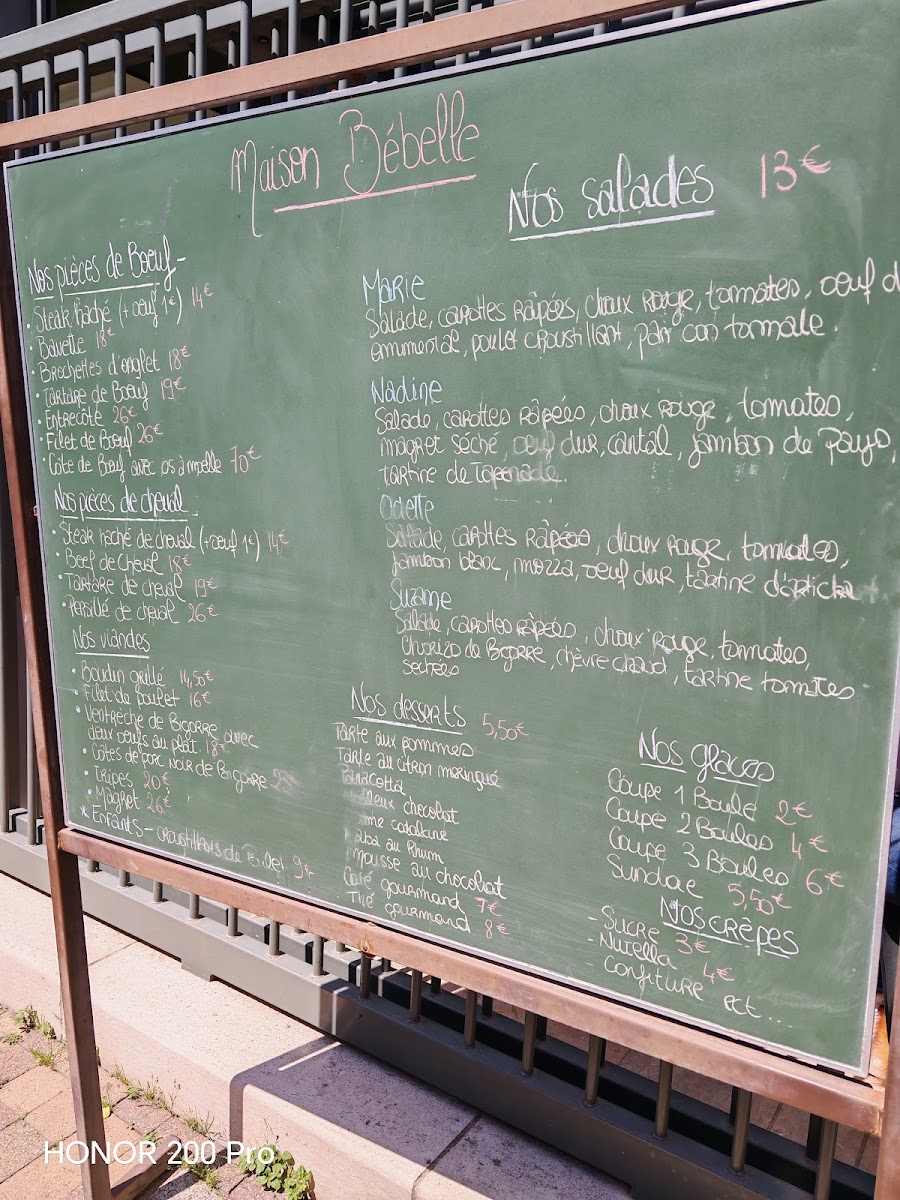 Maison Bébelle
Nos pièces de Boeuf -
• Steak haché (+ oeuf 1€) 14€
• Bavette 18€
• Brochettes d'onglet 18€
• Tartare de Boeuf 19€
• Entrecôte 26€
• Filet de Boeuf 26€
• Côte de Boeuf avec os à moelle 70€
Nos pièces de cheval
• Steak haché de cheval (+oeuf 1€) 14€
• Beef de Cheval 18€
• Tartare de cheval 19€
• Persillé de cheval 26€
Nos viandes
• Boudin grillé 14,50€
• Filet de poulet 16€
• Ventrèche de Bigorre avec
deux oeufs au plat 18€
• Côtes de porc noir de Bigorre
• Tripes 20€
• Magret 26€
* Enfants - croustillants de Poulet
Nos salades 13€
Marie
Salade, carottes râpées, choux rouge, tomates, oeuf d
emmental, poulet croustillant, pan con tomate.
Nadine
Salade, carottes râpées, choux rouge, tomates,
magret séché, oeuf dur, cantal, jambon de Pays,
tartine de Tapenade.
Odette
Salade, carottes râpées, choux rouge, tomates,
jambon blanc, mozza, oeuf dur, tartine d'articha
Suzanne
Salade, carottes râpées, choux rouge, tomates,
Chorizo de Bigorre, chèvre chaud, tartine tomates
sechées
Nos desserts 5,50€
Tarte aux pommes
Tarte au citron meringué
Panacotta
Moelleux chocolat
Crème catalane
Baba au Rhum
Mousse au chocolat
Café gourmand 7€
Thé gourmand 8€
Nos glaces
Coupe 1 Boule 2€
Coupe 2 Boules 4€
Coupe 3 Boules 6€
Sundae 5,50€
Nos crêpes
- Sucre 3€
- Nutella 4€
Confiture ect...
HONOR 200 Pro